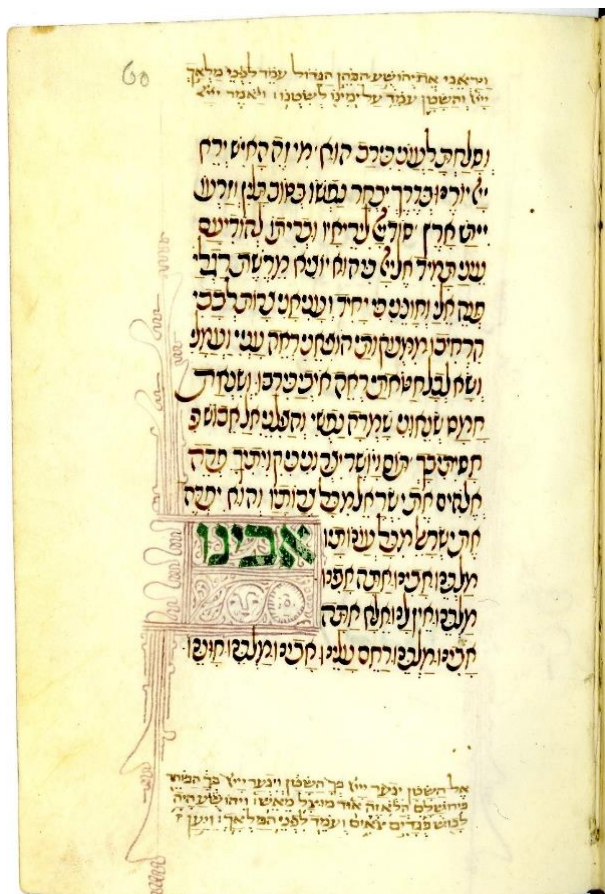 60
ויראני את יהושע הכהן הגדול עמד לפני מלאך
ייי והשטן עמד על ימינו לשטנו: ויאמר ייי
וסלחת לעוני כי רב הוא מי זה האיש ירא
ייי יורנו בדרך יבחר נפשו בטוב תלין וזרעו
יירש ארץ סוד ייי ליריאיו ובריתו להודיעם
עיני תמיד אל ייי כי הוא יוציא מרשת רגלי
פנה אלי וחונני כי יחיד ועני אני צרות לבבי
הרחיבו ממצוקותי הוציאני ראה עניי ועמלי
ושא לכל חטאתי ראה איבי כי רבו ושנאת
חמס שנאוני שמרה נפשי והצילני אל אבוש כי
חסיתי בך תום ויושר יצרוני כי קויתיך פדה
אלהים את ישראל מכל צרותיו והוא יפדה
את ישראל מכל עונותיו
אבינו
מלכנו אבינו אתה אבינו
מלכנו אין לנו אלא אתה
אבינו מלכנו רחם עלינו אבינו מלכנו חוננו
אל השטן יגער ייי בך השטן ויגער ייי בך הבחר
בירושלם הלא זה אוד מוצל מאש: ויהושע היה
לבוש בגדים צואים ועמד לפני המלאך: ויען